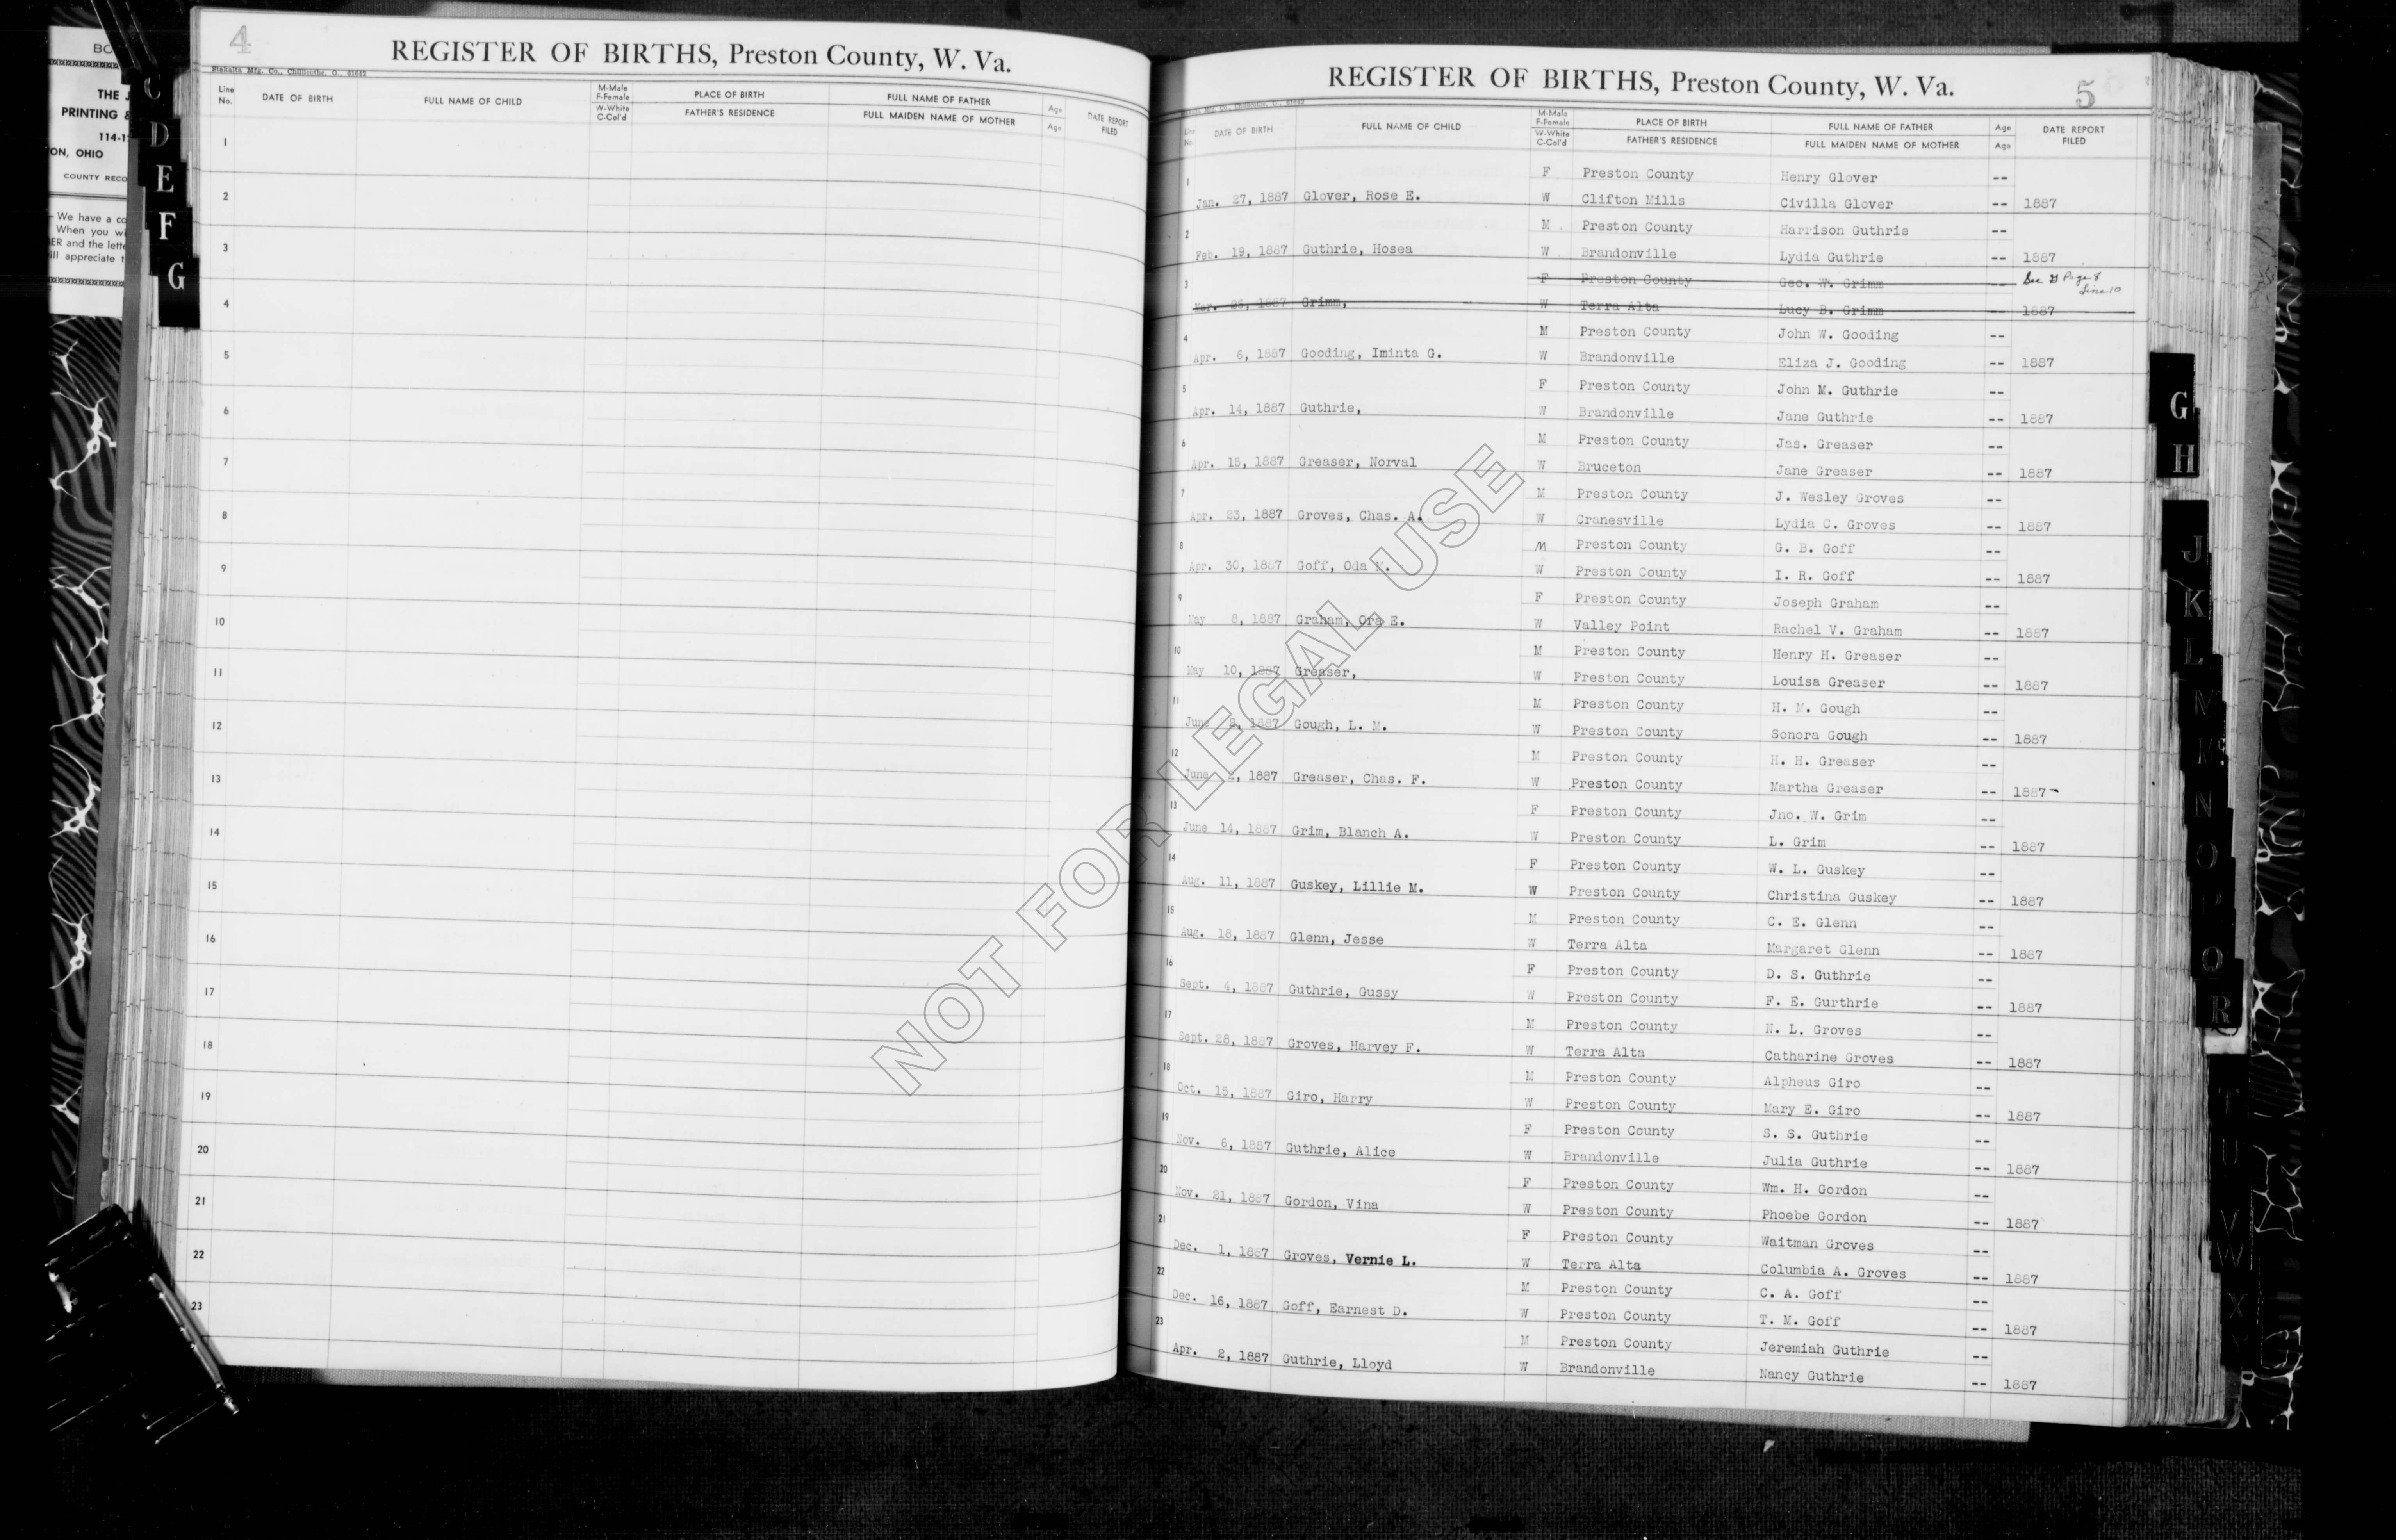 4
REGISTER OF BIRTHS, Preston County, W. Va.
Line No. DATE OF BIRTH FULL NAME OF CHILD M-Male F-Female W-White C-Col'd PLACE OF BIRTH FATHER'S RESIDENCE FULL NAME OF FATHER FULL MAIDEN NAME OF MOTHER Age Age DATE REPORT FILED
1
2
3
4
5
6
7
8
9
10
11
12
13
14
15
16
17
18
19
20
21
22
23
BO
THE J
PRINTING &
114-1
ON, OHIO
COUNTY RECO
We have a co
When you wi
ER and the lette
ill appreciate t
C
D
E
F
G
REGISTER OF BIRTHS, Preston County, W. Va.
5
Line No. DATE OF BIRTH FULL NAME OF CHILD M-Male F-Female W-White C-Col'd PLACE OF BIRTH FATHER'S RESIDENCE FULL NAME OF FATHER FULL MAIDEN NAME OF MOTHER Age Age DATE REPORT FILED
1 F Preston County Henry Glover --
Jan. 27, 1887 Glover, Rose E. W Clifton Mills Civilla Glover -- 1887
2 M Preston County Harrison Guthrie --
Feb. 19, 1887 Guthrie, Hosea W Brandonville Lydia Guthrie -- 1887
3 F Preston County Geo. W. Grimm -- See Page 8 Line 10
Mar. 1887 Grimm, W Terra Alta Lucy B. Grimm -- 1887
4 M Preston County John W. Gooding --
Apr. 6, 1887 Gooding, Iminta G. W Brandonville Eliza J. Gooding -- 1887
5 F Preston County John M. Guthrie --
Apr. 14, 1887 Guthrie, W Brandonville Jane Guthrie -- 1887
6 M Preston County Jas. Greaser --
Apr. 15, 1887 Greaser, Norval W Bruceton Jane Greaser -- 1887
7 M Preston County J. Wesley Groves --
Apr. 23, 1887 Groves, Chas. A. W Cranesville Lydia C. Groves -- 1887
8 M Preston County G. B. Goff --
Apr. 30, 1887 Goff, Oda M. W Preston County I. R. Goff -- 1887
9 F Preston County Joseph Graham --
May 8, 1887 Graham, Ora E. W Valley Point Rachel V. Graham -- 1887
10 M Preston County Henry H. Greaser --
May 10, 1887 Greaser, W Preston County Louisa Greaser -- 1887
11 M Preston County H. M. Gough --
June 1887 Gough, L. M. W Preston County Sonora Gough -- 1887
12 M Preston County H. H. Greaser --
June 1887 Greaser, Chas. F. W Preston County Martha Greaser -- 1887
13 F Preston County Jno. W. Grim --
June 14, 1887 Grim, Blanch A. W Preston County L. Grim -- 1887
14 F Preston County W. L. Guskey --
Aug. 11, 1887 Guskey, Lillie M. W Preston County Christina Guskey -- 1887
15 M Preston County C. E. Glenn --
Aug. 18, 1887 Glenn, Jesse W Terra Alta Margaret Glenn -- 1887
16 F Preston County D. S. Guthrie --
Sept. 4, 1887 Guthrie, Gussy W Preston County F. E. Gurthrie -- 1887
17 M Preston County N. L. Groves --
Sept. 28, 1887 Groves, Harvey F. W Terra Alta Catharine Groves -- 1887
18 M Preston County Alpheus Giro --
Oct. 15, 1887 Giro, Harry W Preston County Mary E. Giro -- 1887
19 F Preston County S. S. Guthrie --
Nov. 6, 1887 Guthrie, Alice W Brandonville Julia Guthrie -- 1887
20 F Preston County Wm. H. Gordon --
Nov. 21, 1887 Gordon, Vina W Preston County Phoebe Gordon -- 1887
21 F Preston County Waitman Groves --
Dec. 1, 1887 Groves, Vernie L. W Terra Alta Columbia A. Groves -- 1887
22 M Preston County C. A. Goff --
Dec. 16, 1887 Goff, Earnest D. W Preston County T. M. Goff -- 1887
23 M Preston County Jeremiah Guthrie --
Apr. 2, 1887 Guthrie, Lloyd W Brandonville Nancy Guthrie -- 1887
G
H
J
K
L
M
N
O
R
NOT FOR LEGAL USE